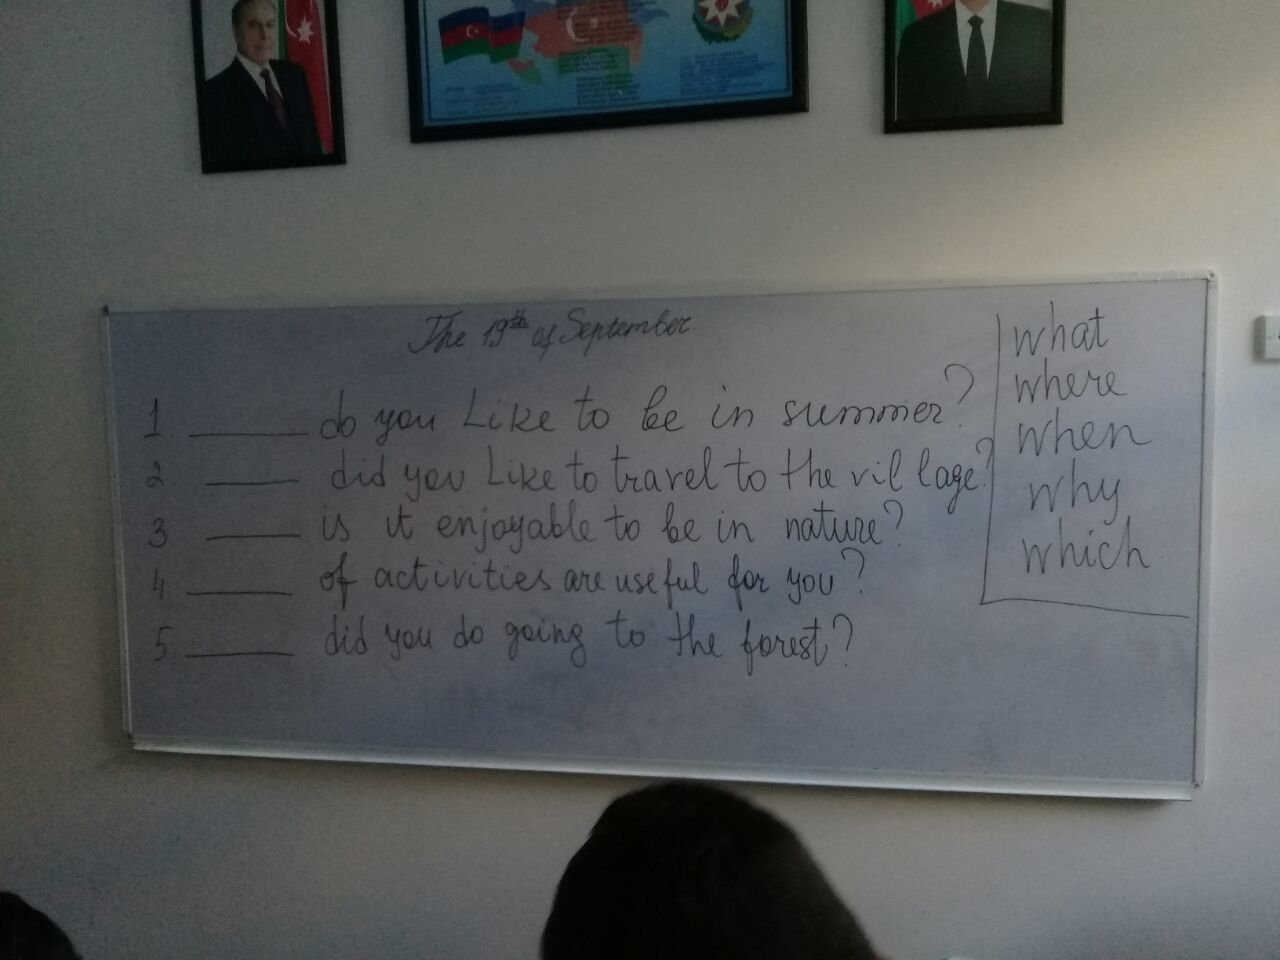 The 19th of September.
1. ______ do you Like to be in summer?
2 ______ did you Like to travel to the village?
3 ______ is it enjoyable to be in nature?
4 ______ of activities are useful for you?
5 ______ did you do going to the forest?
what
where
when
why
which